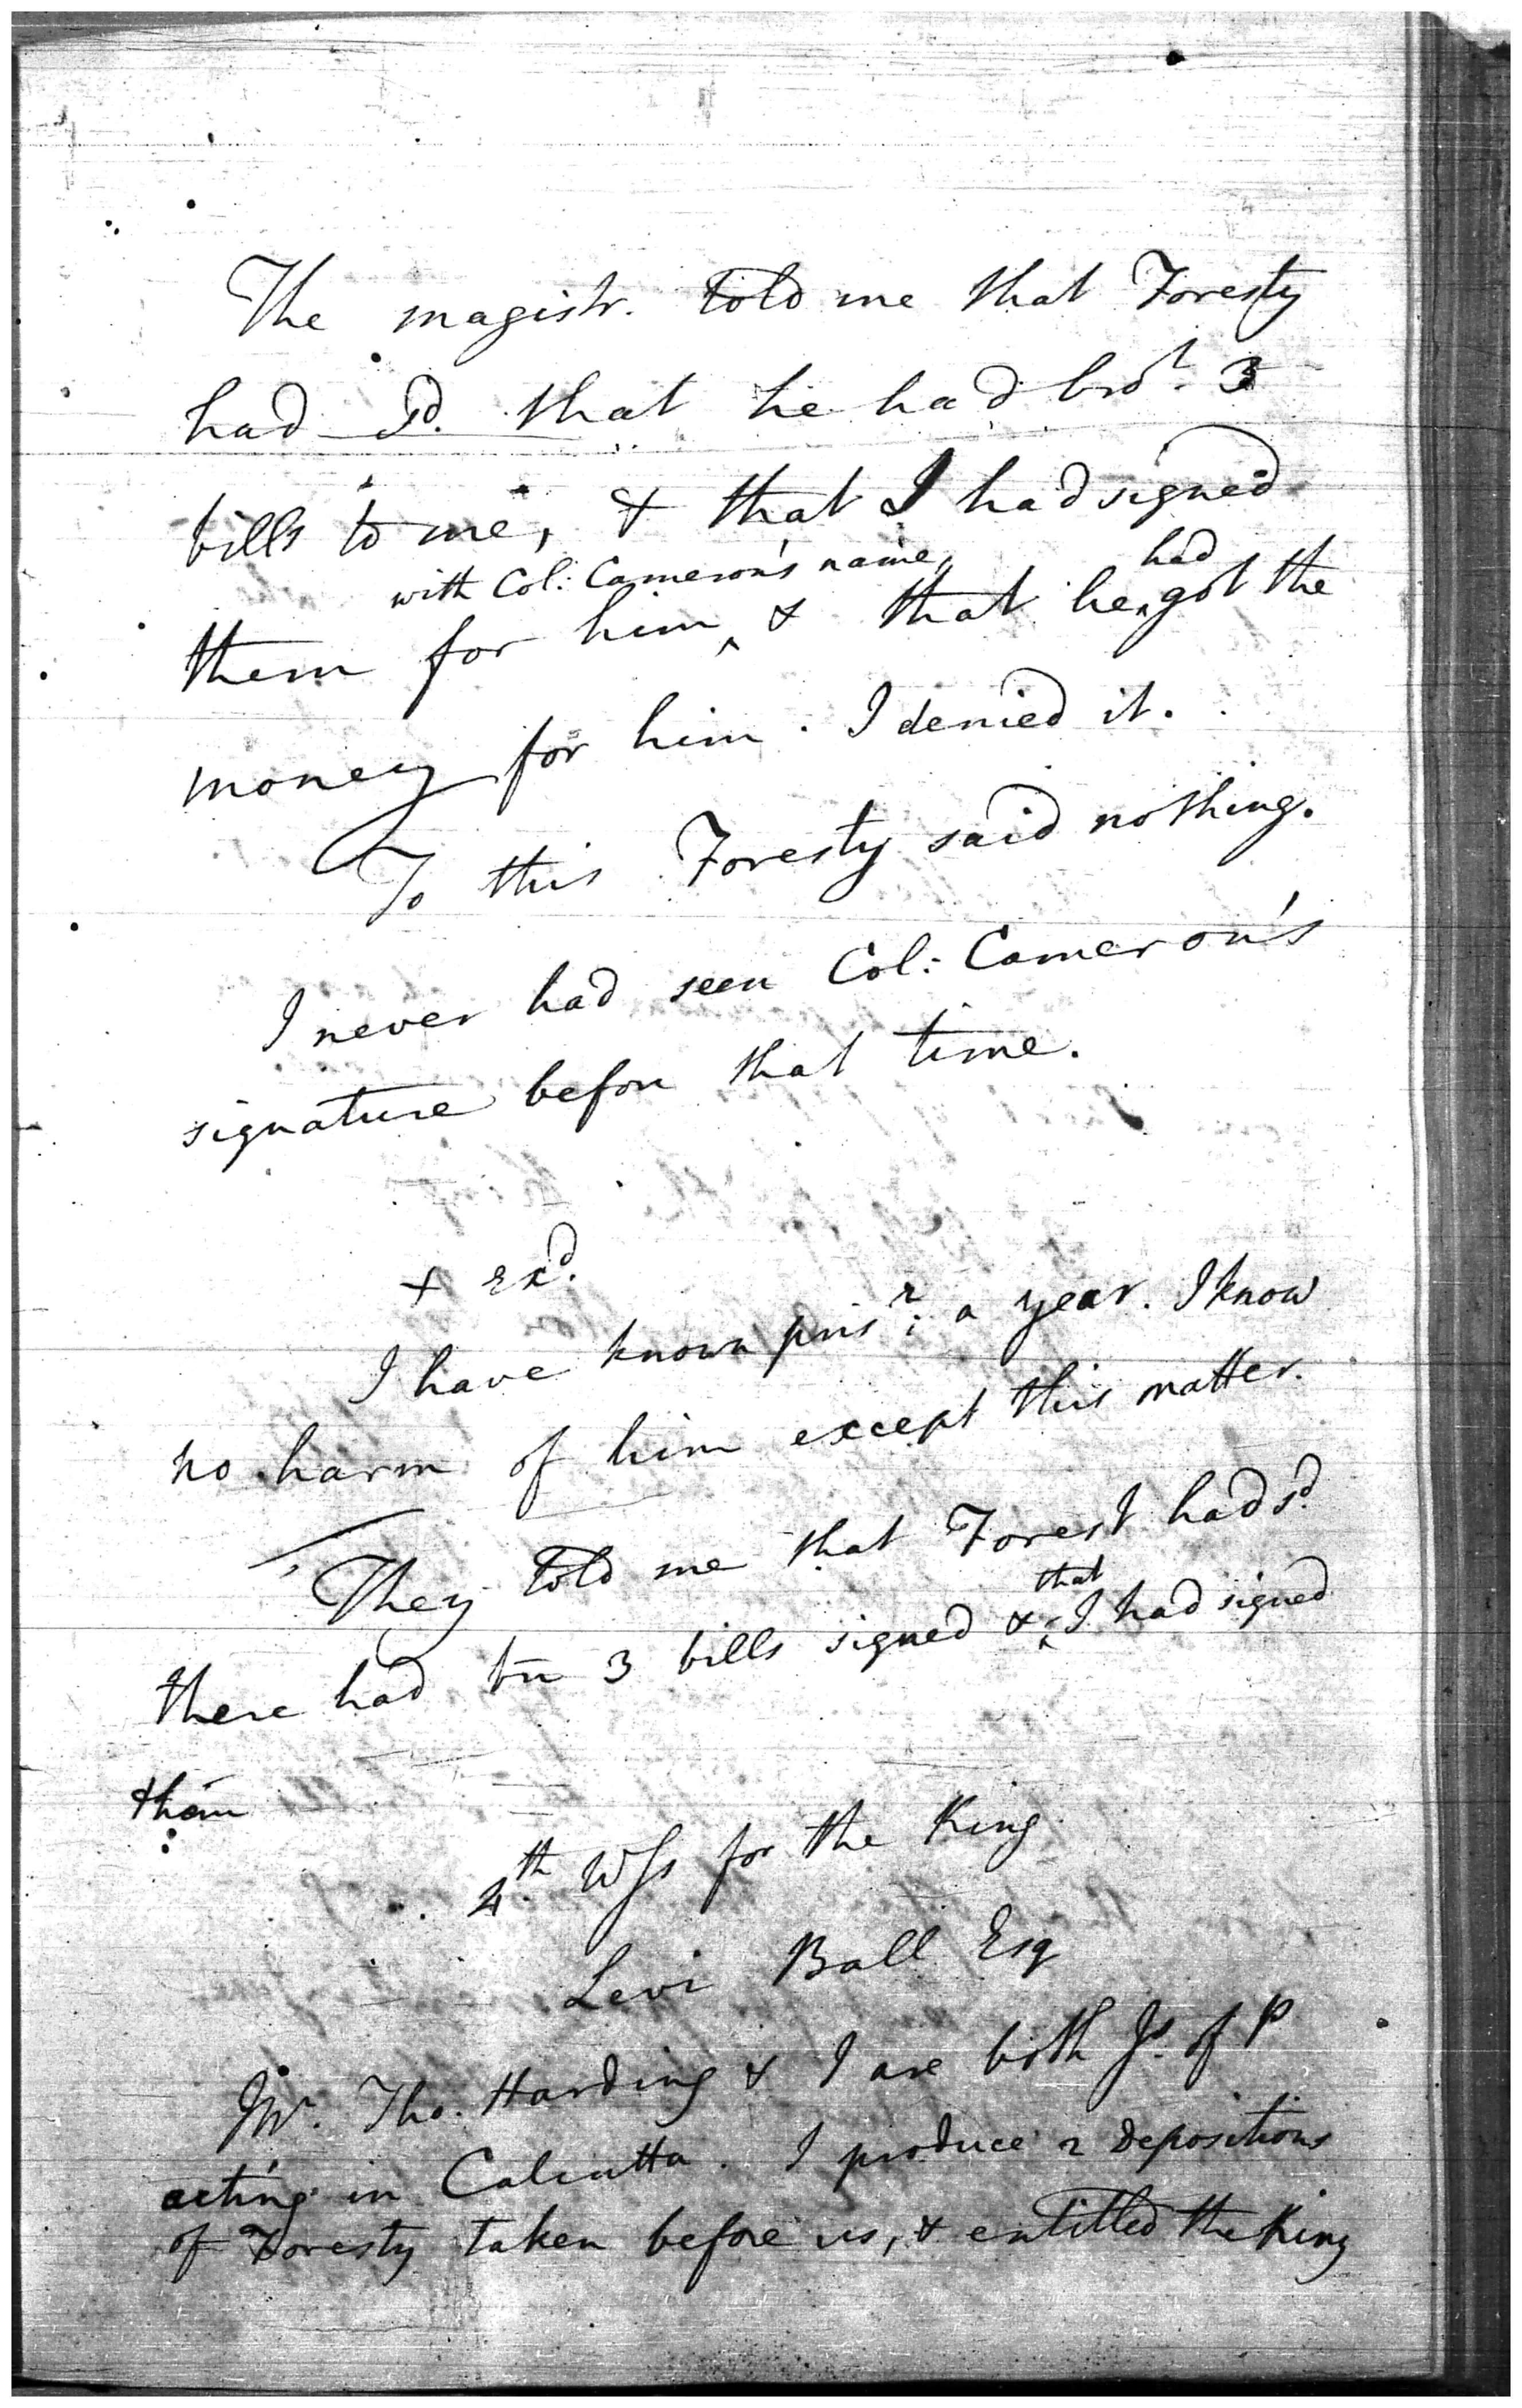 The magistr. told me that Foresty
had sd. that he had brot. 3
bills to me, & that I had signed
with Col: Cameron's name, had
them for him ^ & that he ^ got the
money for him. I denied it.
To this Foresty said nothing.
I never had seen Col: Cameron's
signature before that time.
+ Exd.
I have known prisr: a year. I know
no harm of him except this matter.
They told me that Forest had sd.
that
there had bn 3 bills signed & ^ I had signed
them
4th. Wss for the King
Levi Ball Esq
Mr. Tho. Harding & I are both Js. of P
acting in Calcutta. I produce 2 depositions
of Foresty taken before us, & entitled the King